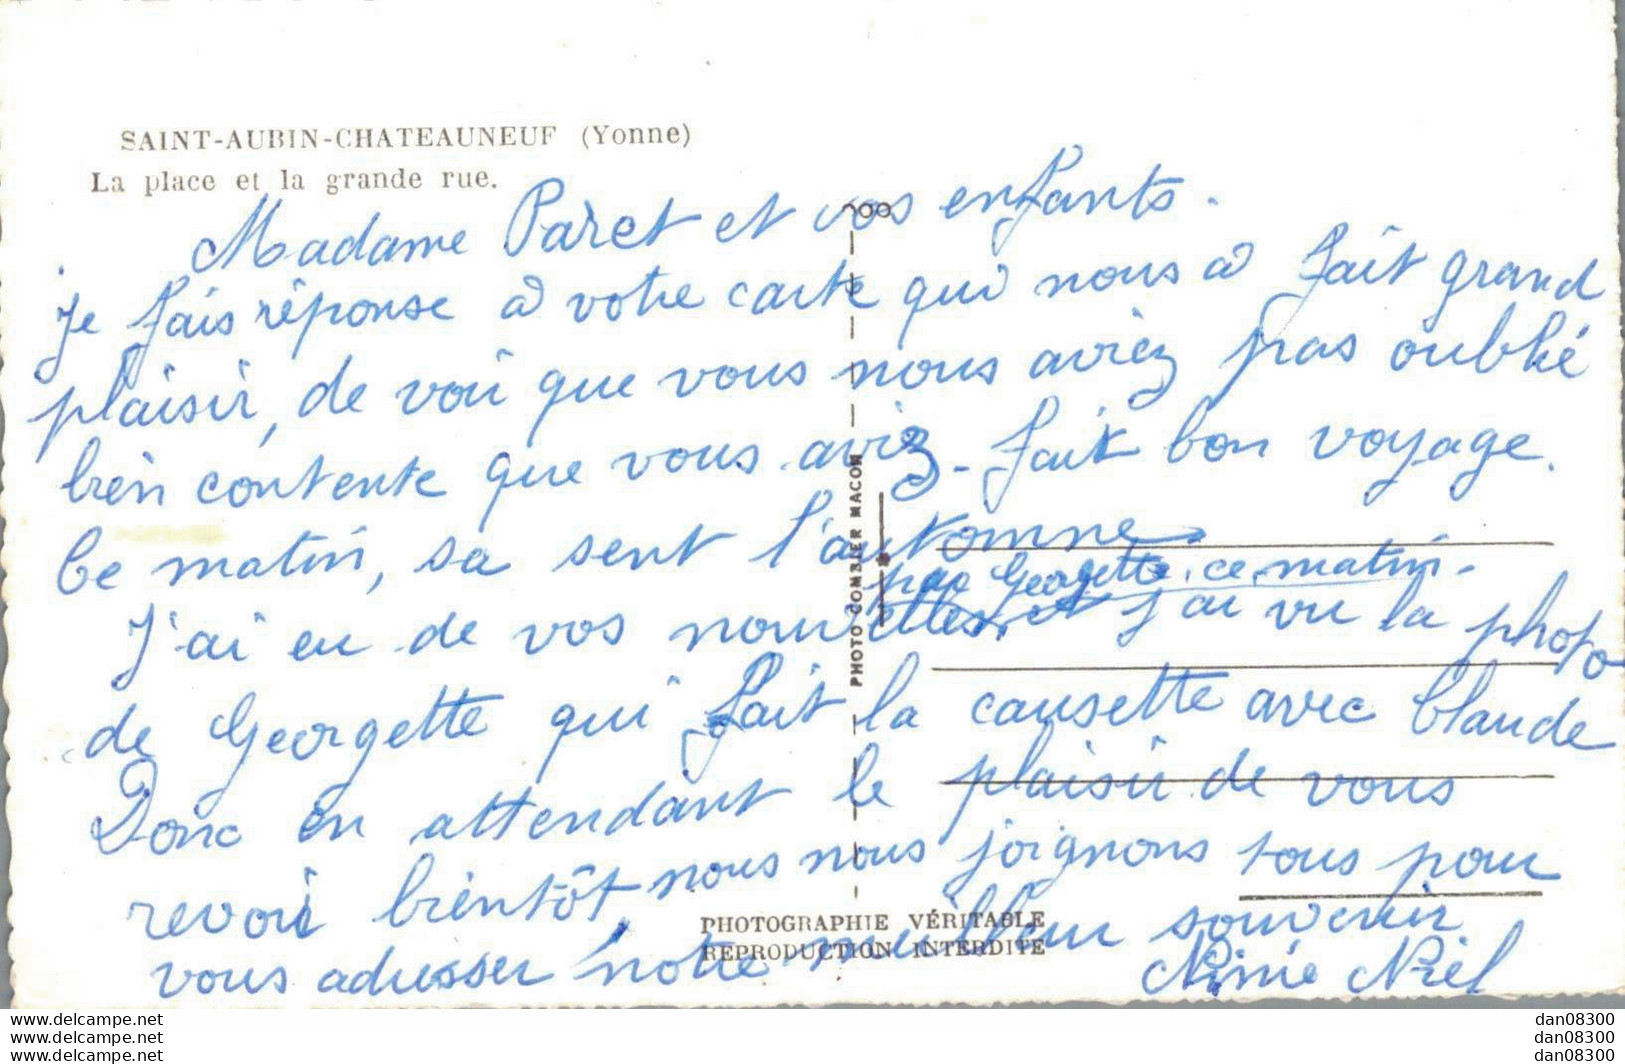 SAINT-AUBIN-CHATEAUNEUF (Yonne)
La place et la grande rue.
Madame Paret et vos enfants.
Je fais réponse a votre carte qui nous a fait grand
plaisir, de voir que vous nous aviez pas oublié
bien contente que vous aviez fait bon voyage.
Ce matin, sa sent l'automne
par Georgette, ce matin.
J'ai eu de vos nouvelles, et j'ai vu la photo
de Georgette qui fait la causette avec Claude
Donc en attendant le plaisir de vous
revoir bientôt, nous nous joignons tous pour
vous adresser notre meilleur souvenir
Niel
PHOTO COMBIER MACON
PHOTOGRAPHIE VÉRITABLE
REPRODUCTION INTERDITE
www.delcampe.net dan08300
www.delcampe.net dan08300
www.delcampe.net dan08300